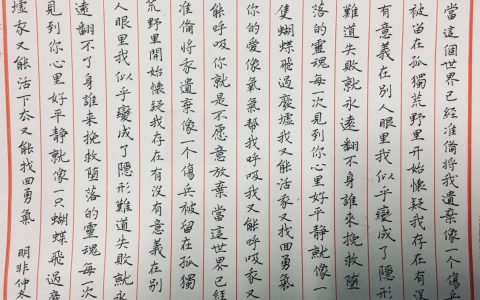 當這個世界已經准俻將我遺棄像一個傷兵
被留在孤獨荒野里開始懷疑我存在有沒
有意義在別人眼里我似乎變成了隱形
難道失敗就永遠翻不身誰來挽救墮
落的靈魂每一次見到你心里好平靜就像一
隻蝴蝶飛過廢墟我又能活家又找回勇氣
你的愛像氧氣幫我呼吸我又能呼吸家又
能呼吸你就是不愿意放棄當這世界已經
准俻將家遺棄像一个傷兵被留在孤獨
荒野里開始懷疑我存在有沒有意義在別
人眼里我似乎變成了隱形難道失敗就永
遠翻不了身誰来挽救墮落的靈魂每次
見到你心里好平靜就像一只蝴蝶飛過廢
墟家又能活下去又能找回勇氣 明非仲